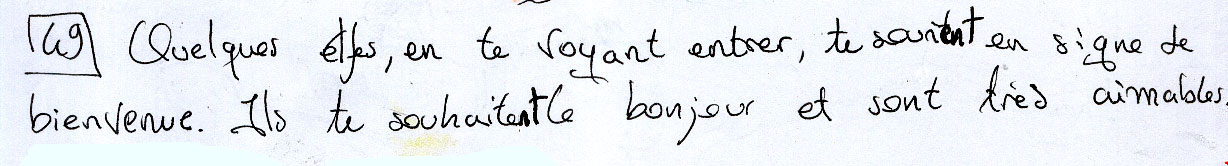 149 Quelques élfes, en te voyant entrer, te sourient en signe de
bienvenue. Ils te souhaitent le bonjour et sont très aimables.